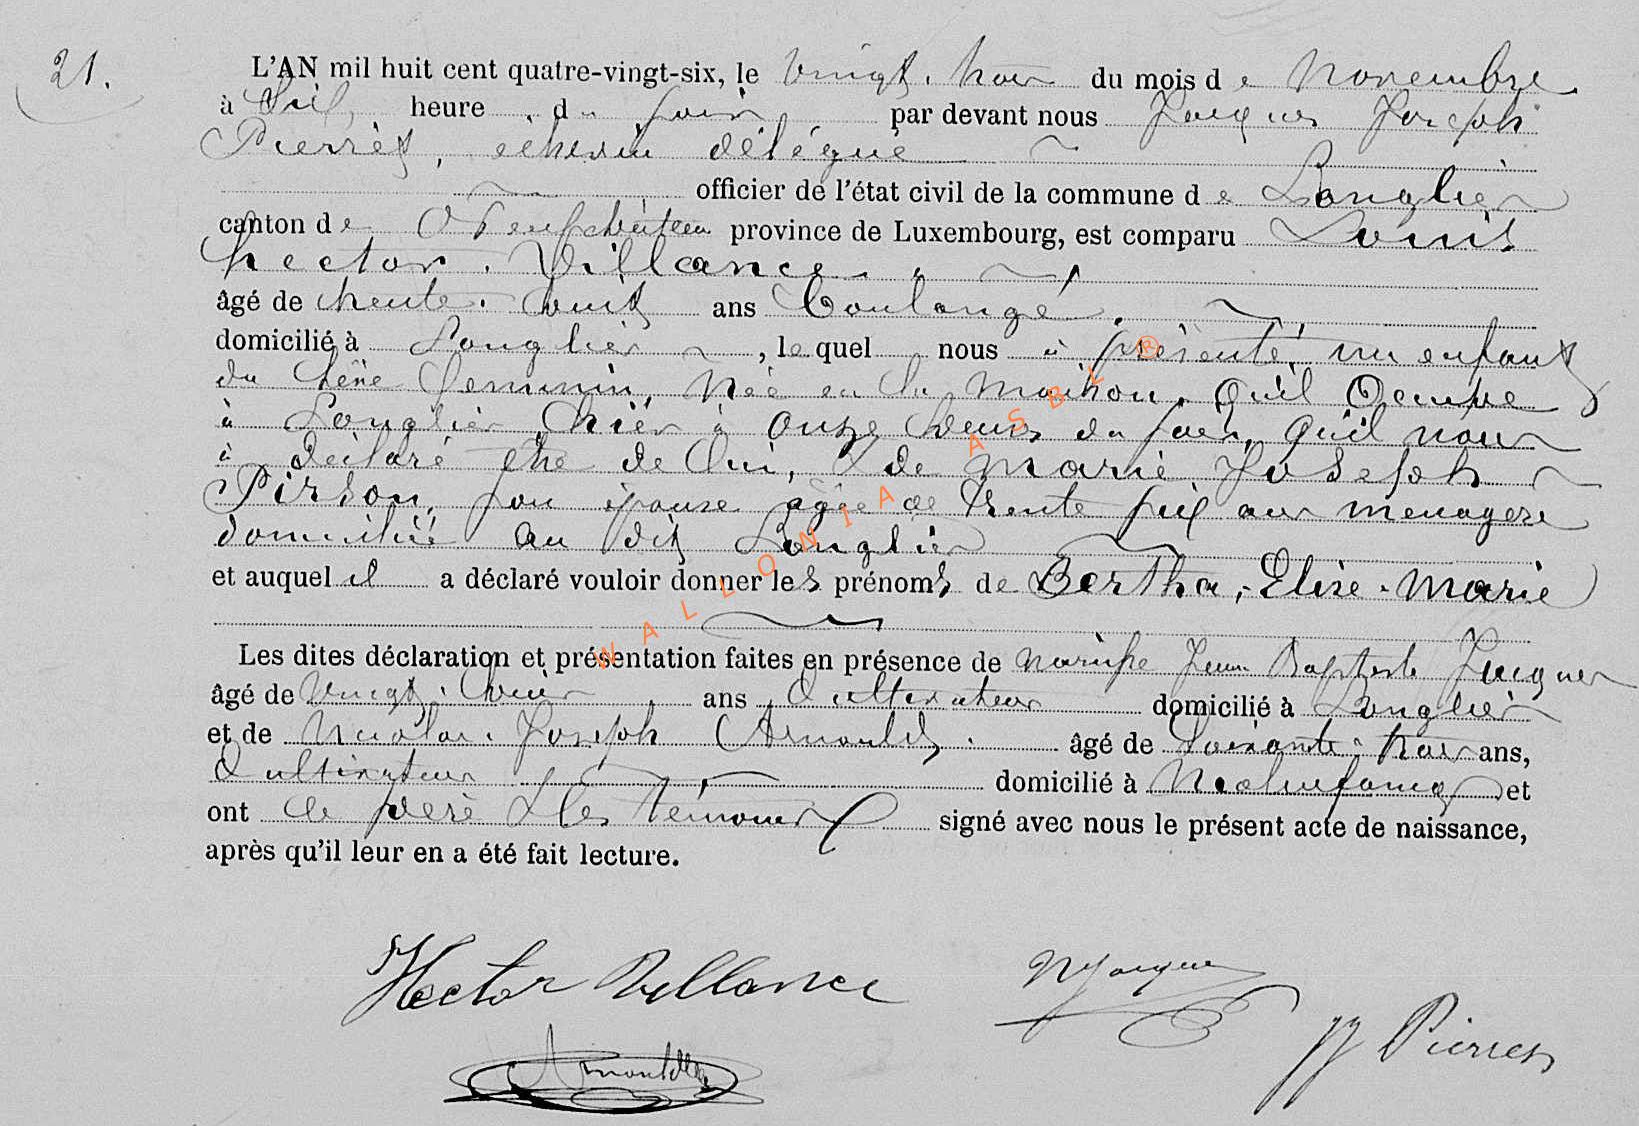 21.
L'AN mil huit cent quatre-vingt-six, le vingt-trois du mois de Novembre
à six heures du soir par devant nous Jacques Joseph
Pierret, échevin délégué
officier de l'état civil de la commune de Longlier
canton de Neufchâteau province de Luxembourg, est comparu Louis
Hector Villance
âgé de trente-huit ans Boulanger
domicilié à Longlier, lequel nous a présenté un enfant
du sexe féminin, née en la maison qu'il occupe
à Longlier hier à onze heures du soir, qu'il nous
a déclaré être de lui, & de Marie Joseph
Pirson, son épouse agée de trente six ans ménagère
domiciliée au dit Longlier
et auquel il a déclaré vouloir donner les prénoms de Bertha, Elise-Marie
Les dites déclaration et présentation faites en présence de Jean Baptiste Jacques
âgé de vingt- ans Cultivateur domicilié à Longlier
et de Nicolas-Joseph Arnould âgé de Soixante-trois ans,
Cultivateur domicilié à et
ont le père & les témoins signé avec nous le présent acte de naissance,
après qu'il leur en a été fait lecture.
Hector Villance NJacques
Arnould JJ Pierret
WALLONIA ASBL ®